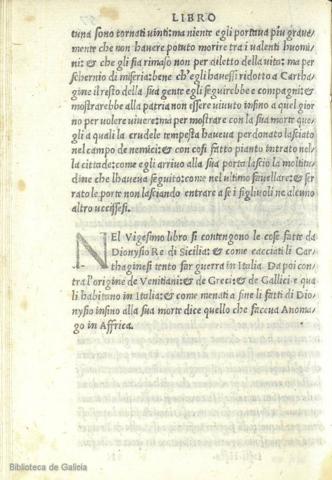 LIBRO
tuna sono tornati uinti: ma niente egli portaua piu graue
mente che non hauere potuto morire tra i ualenti huomi
ni: & che gli sia rimaso non per diletto della uita: ma per
schernio di miseria: bene ch'egli hauessi ridotto a Cartha
gine il resto della sua gente egli seguirebbe e compagni: &
mostrarebbe alla patria non essere uiuuto insino a quel gior
no per uolere uiuere: ma per mostrare con la sua morte que
gli a quali la crudele tempesta haueua perdonato lasciato
nel campo de nemici: & con cosi fatto pianto intrato nel
la cittade: come egli arriuo alla sua porta lascio la moltitu
dine che lhaueua seguito: come nel ultimo fauellare: & ser
rato le porte non lasciando entrare a se i figliuoli ne alcuno
altro uccissesi.
NEl Vigesimo libro si contengono le cose fatte da
Dionysio Re di Sicilia: & come cacciati li Car
thaginesi tento far guerra in Italia. Da poi con
tra l'origine de Venitiani: & de Greci: & de Gallici e qua
li habitano in Italia: & come menati a fine li fatti di Dio
nysio insino alla sua morte dice quello che faceua Anoma
go in Affrica.
Biblioteca de Galicia